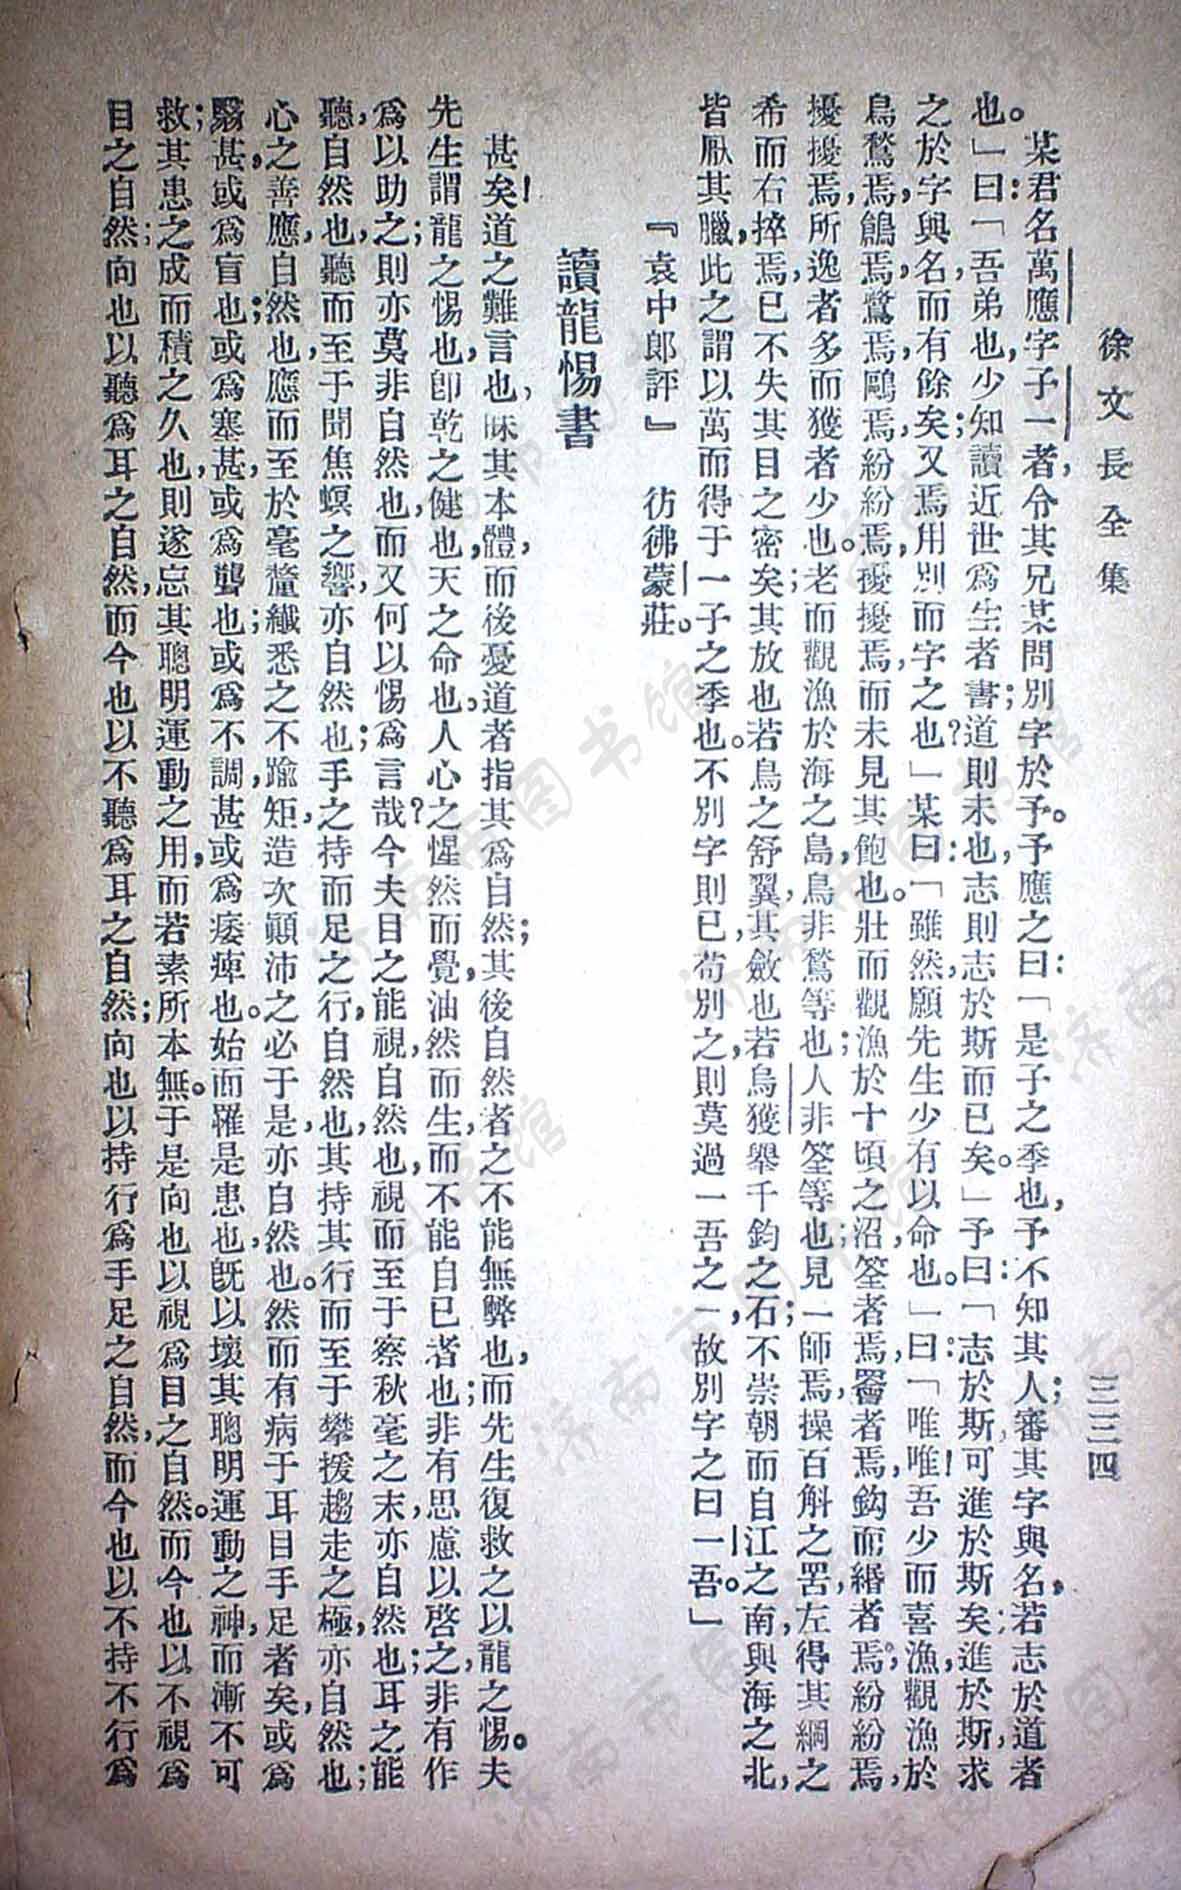 徐文長全集
三三四
某君名萬應，字子一者，令其兄某問別字於予。予應之曰：「是子之季也，予不知其人；審其字與名，若志於道者
也。」曰：「吾弟也，少知讀近世爲生者書；道則未也，志則志於斯而已矣。」予曰：「志於斯，可進於斯矣；進於斯，求
之於字與名而有餘矣，又焉用別而字之也？」某曰：「雖然，願先生少有以命也。」曰：「唯唯！吾少而喜漁，觀漁於
鳥鶖焉，鶬焉，鷺焉，鷗焉，紛紛焉，擾擾焉，而未見其飽也。壯而觀漁於十頃之沼，筌者焉，罾者焉，鈎而緡者焉，紛紛焉，
擾擾焉，所逸者多而獲者少也。老而觀漁於海之島，鳥非鶖等也；人非筌等也；見一師焉，操百斛之罟，左得其綱之
希而右捽焉，已不失其目之密矣；其放也若鳥之舒翼，其斂也若烏獲舉千鈞之石，不崇朝而自江之南，與海之北，
皆厭其臘，此之謂以萬而得于一子之季也。不別字則已，苟別之，則莫過一吾之一，故別字之曰一吾。」
『袁中郎評』　彷彿蒙莊。
讀龍惕書
甚矣！道之難言也，昧其本體，而後憂道者指其爲自然；其後自然者之不能無弊也，而先生復救之以龍之惕。夫
先生謂龍之惕也，卽乾之健也，天之命也，人心之惺然而覺，油然而生，而不能自已者也；非有思慮以啓之，非有作
爲以助之；則亦莫非自然也，而又何以惕爲言哉？今夫目之能視，自然也，視而至于察秋毫之末，亦自然也；耳之能
聽，自然也，聽而至于聞焦螟之響，亦自然也；手之持而足之行，自然也，其持其行而至于攀援趨走之極，亦自然也；
心之善應，自然也，應而至於毫釐纖悉之不踰矩，造次顚沛之必于是，亦自然也。然而有病于耳目手足者矣，或爲
翳，甚或爲盲也；或爲塞，甚或爲聾也；或爲不調，甚或爲痿痺也。始而罹是患也，旣以壞其聰明運動之神，而漸不可
救；其患之成而積之久也，則遂忘其聰明運動之用，而若素所本無。于是向也以視爲目之自然。而今也以不視爲
目之自然；向也以聽爲耳之自然，而今也以不聽爲耳之自然；向也以持行爲手足之自然，而今也以不持不行爲